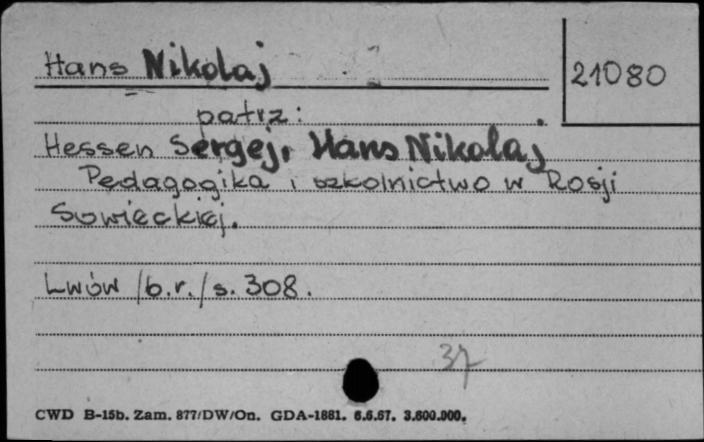 Hans Nikolaj
21080
patrz:
Hessen Sergej, Hans Nikolaj
Pedagogika i szkolnictwo w Rosji
Sowieckiej.
Lwów /b.r./ s. 308.
37
CWD B-15b. Zam. 877/DW/On. GDA-1881. 6.6.67. 3.600.000.